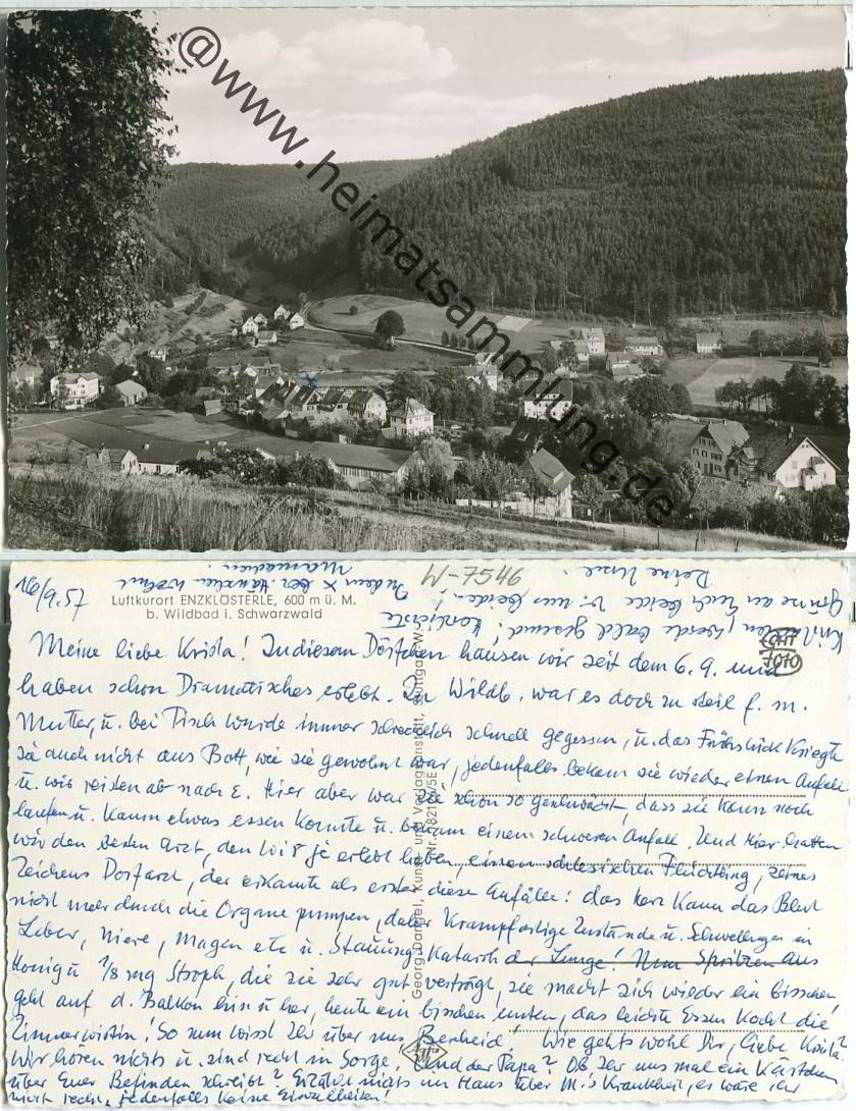 @www.heimatsammlung.de
W-7546
10/9.57
Luftkurort ENZKLÖSTERLE, 600 m ü. M.
b. Wildbad i. Schwarzwald
Meine liebe Krista! In diesem Dörfchen hausen wir seit dem 6.9. und
haben schon Dramatisches erlebt. In Wildb. war es doch zu steil f. m.
Mutter, u. bei Tisch wurde immer schrecklich schnell gegessen, u. das Frühstück kriegte
sie auch nicht aus Bett, wie sie gewohnt war, jedenfalls bekam sie wieder einen Anfall
u. wir reisten ab nach E. Hier aber war sie schon so geschwächt, dass sie kaum noch
laufen u. kaum etwas essen konnte u. bekam einen schweren Anfall. Und hier hatten
wir den besten Arzt, den wir je erlebt haben, einen schlesischen Flüchtling, seines
Zeichens Dorfarzt, der erkannte als erster diese Anfälle: das Herz kann das Blut
nicht mehr durch die Organe pumpen, daher krampfartige Zustände u. Schwellungen in
Leber, Niere, Magen etc u. Stauungskatarrh der Lunge! Nun Spritzen aus
Honig u 1/8 mg Stroph, die sie sehr gut verträgt, sie macht sich wieder ein bisschen,
geht auf d. Balkon hin u her, heute ein bisschen unten, das leichte Essen kocht die
Zimmerwirtin! So nun wisst Ihr über uns Bescheid! Wie gehts wohl Dir, liebe Krista?
Wir hören nichts u. sind recht in Sorge. Und der Papa? Ob Ihr uns mal ein Kärtchen
über Euer Befinden schreibt? Erzählt nichts im Haus über M.'s Krankheit, es wäre ihr
nicht recht, jedenfalls keine Einzelheiten!
werde bald gesund! herzlichste
Grüsse an Euch beide v. uns beiden!
Deine